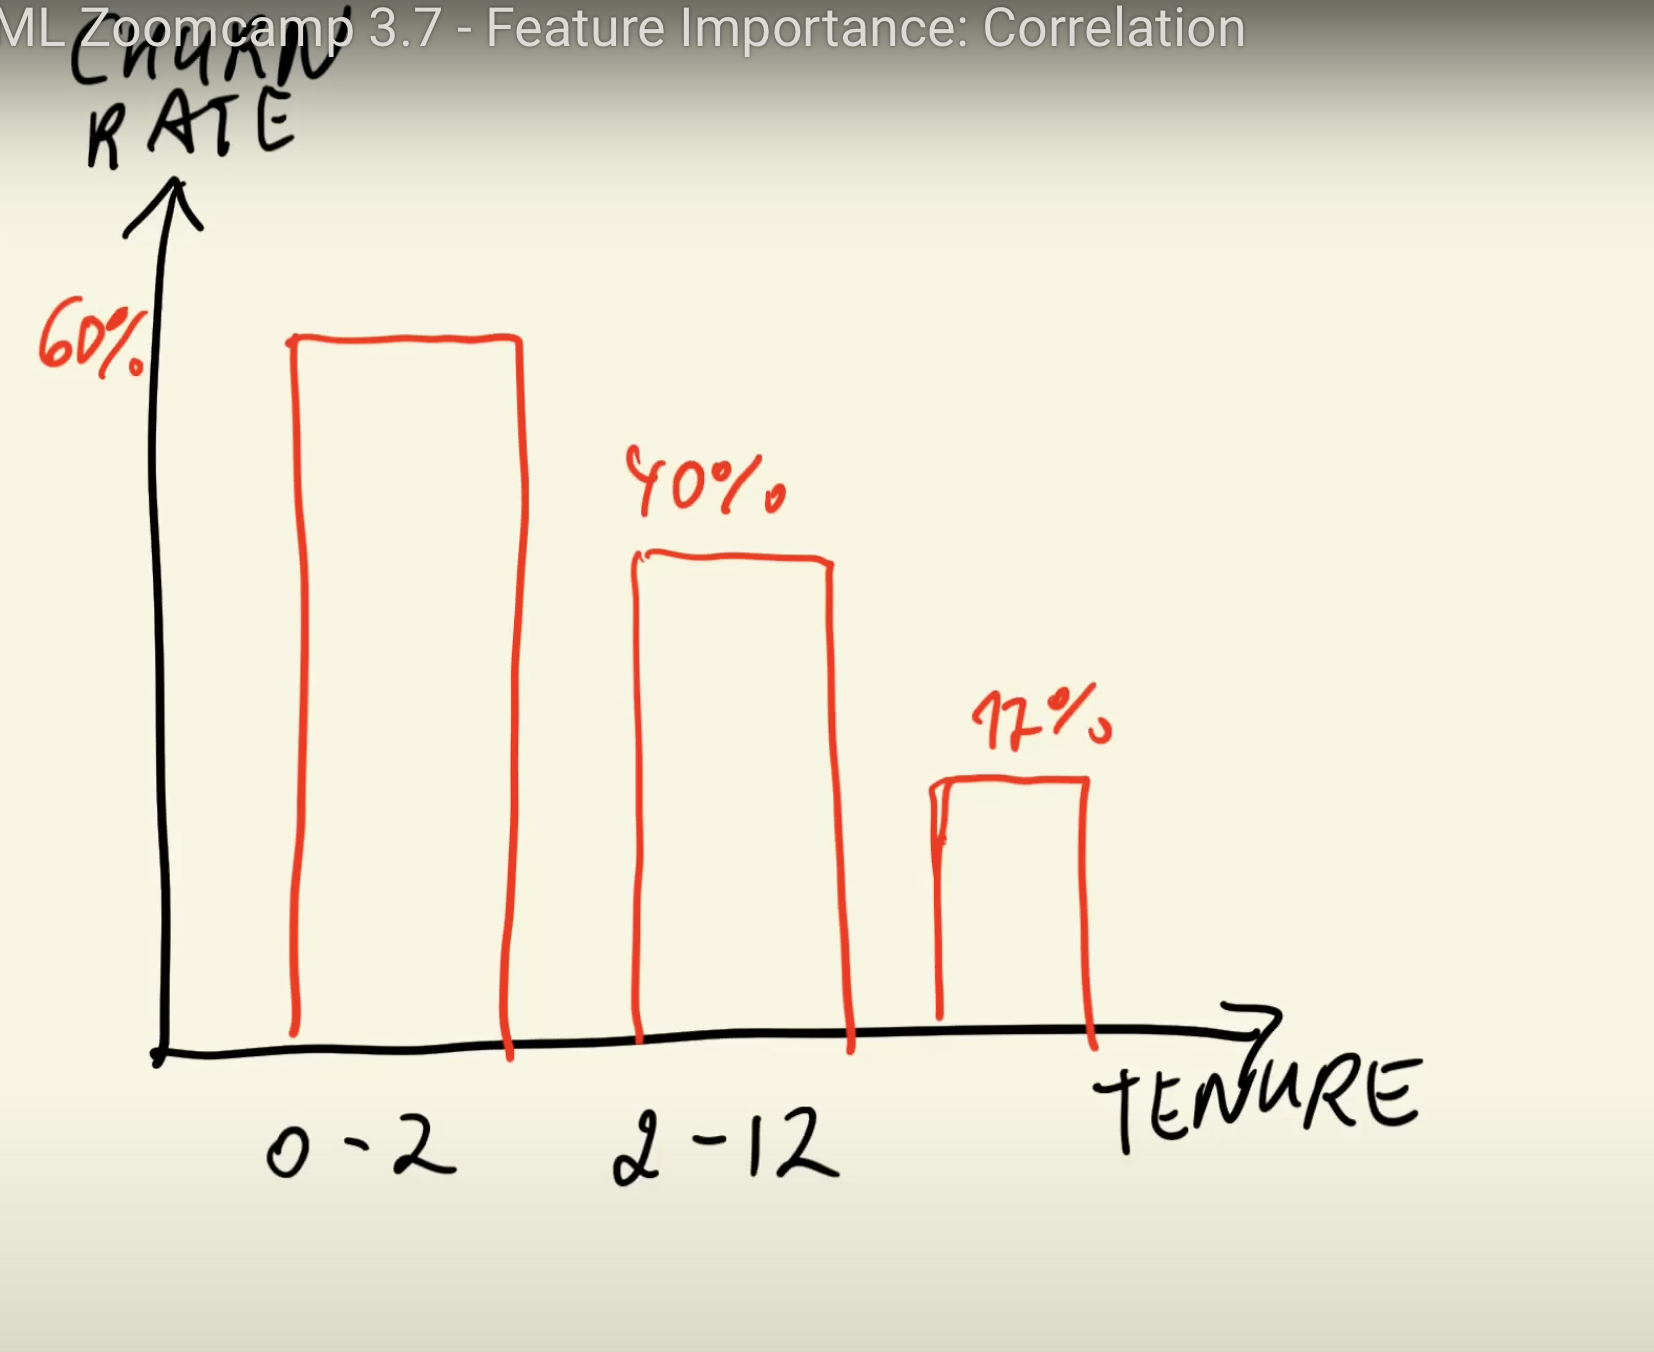 ML Zoomcamp 3.7 - Feature Importance: Correlation
CHURN
RATE
60%
40%
17%
TENURE
0-2
2-12